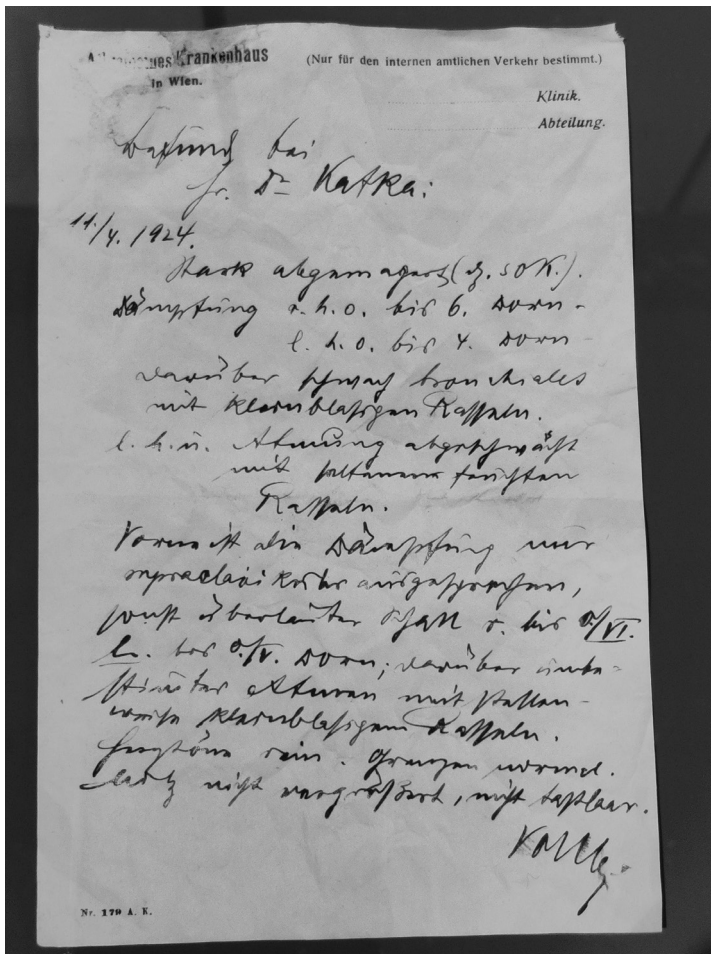 Allgemeines Krankenhaus
in Wien.
(Nur für den internen amtlichen Verkehr bestimmt.)
Klinik.
Abteilung.
Befund bei
Hr. Dr Kafka:
11./4. 1924.
Stark abgemagert (dz. 50 K.).
Dämpfung r. h. o. bis 6. Dorn-
l. h. o. bis 4. Dorn-
darüber schwach bronchiales
mit kleinblasigen Rasseln.
l. h. u. Atmung abgeschwächt
mit seltenem feuchten
Rasseln.
Vorne ist die Dämpfung nur
supraclavikular ausgesprochen,
sonst überlauter Schall r. bis /VI.
l. bis /V. Dorn; darüber unbe-
stimmtes Atmen mit stellen-
weise kleinblasigem Rasseln.
Herztöne rein. Grenzen normal.
Milz nicht vergrößert, nicht tastbar.
Nr. 179 A. K.